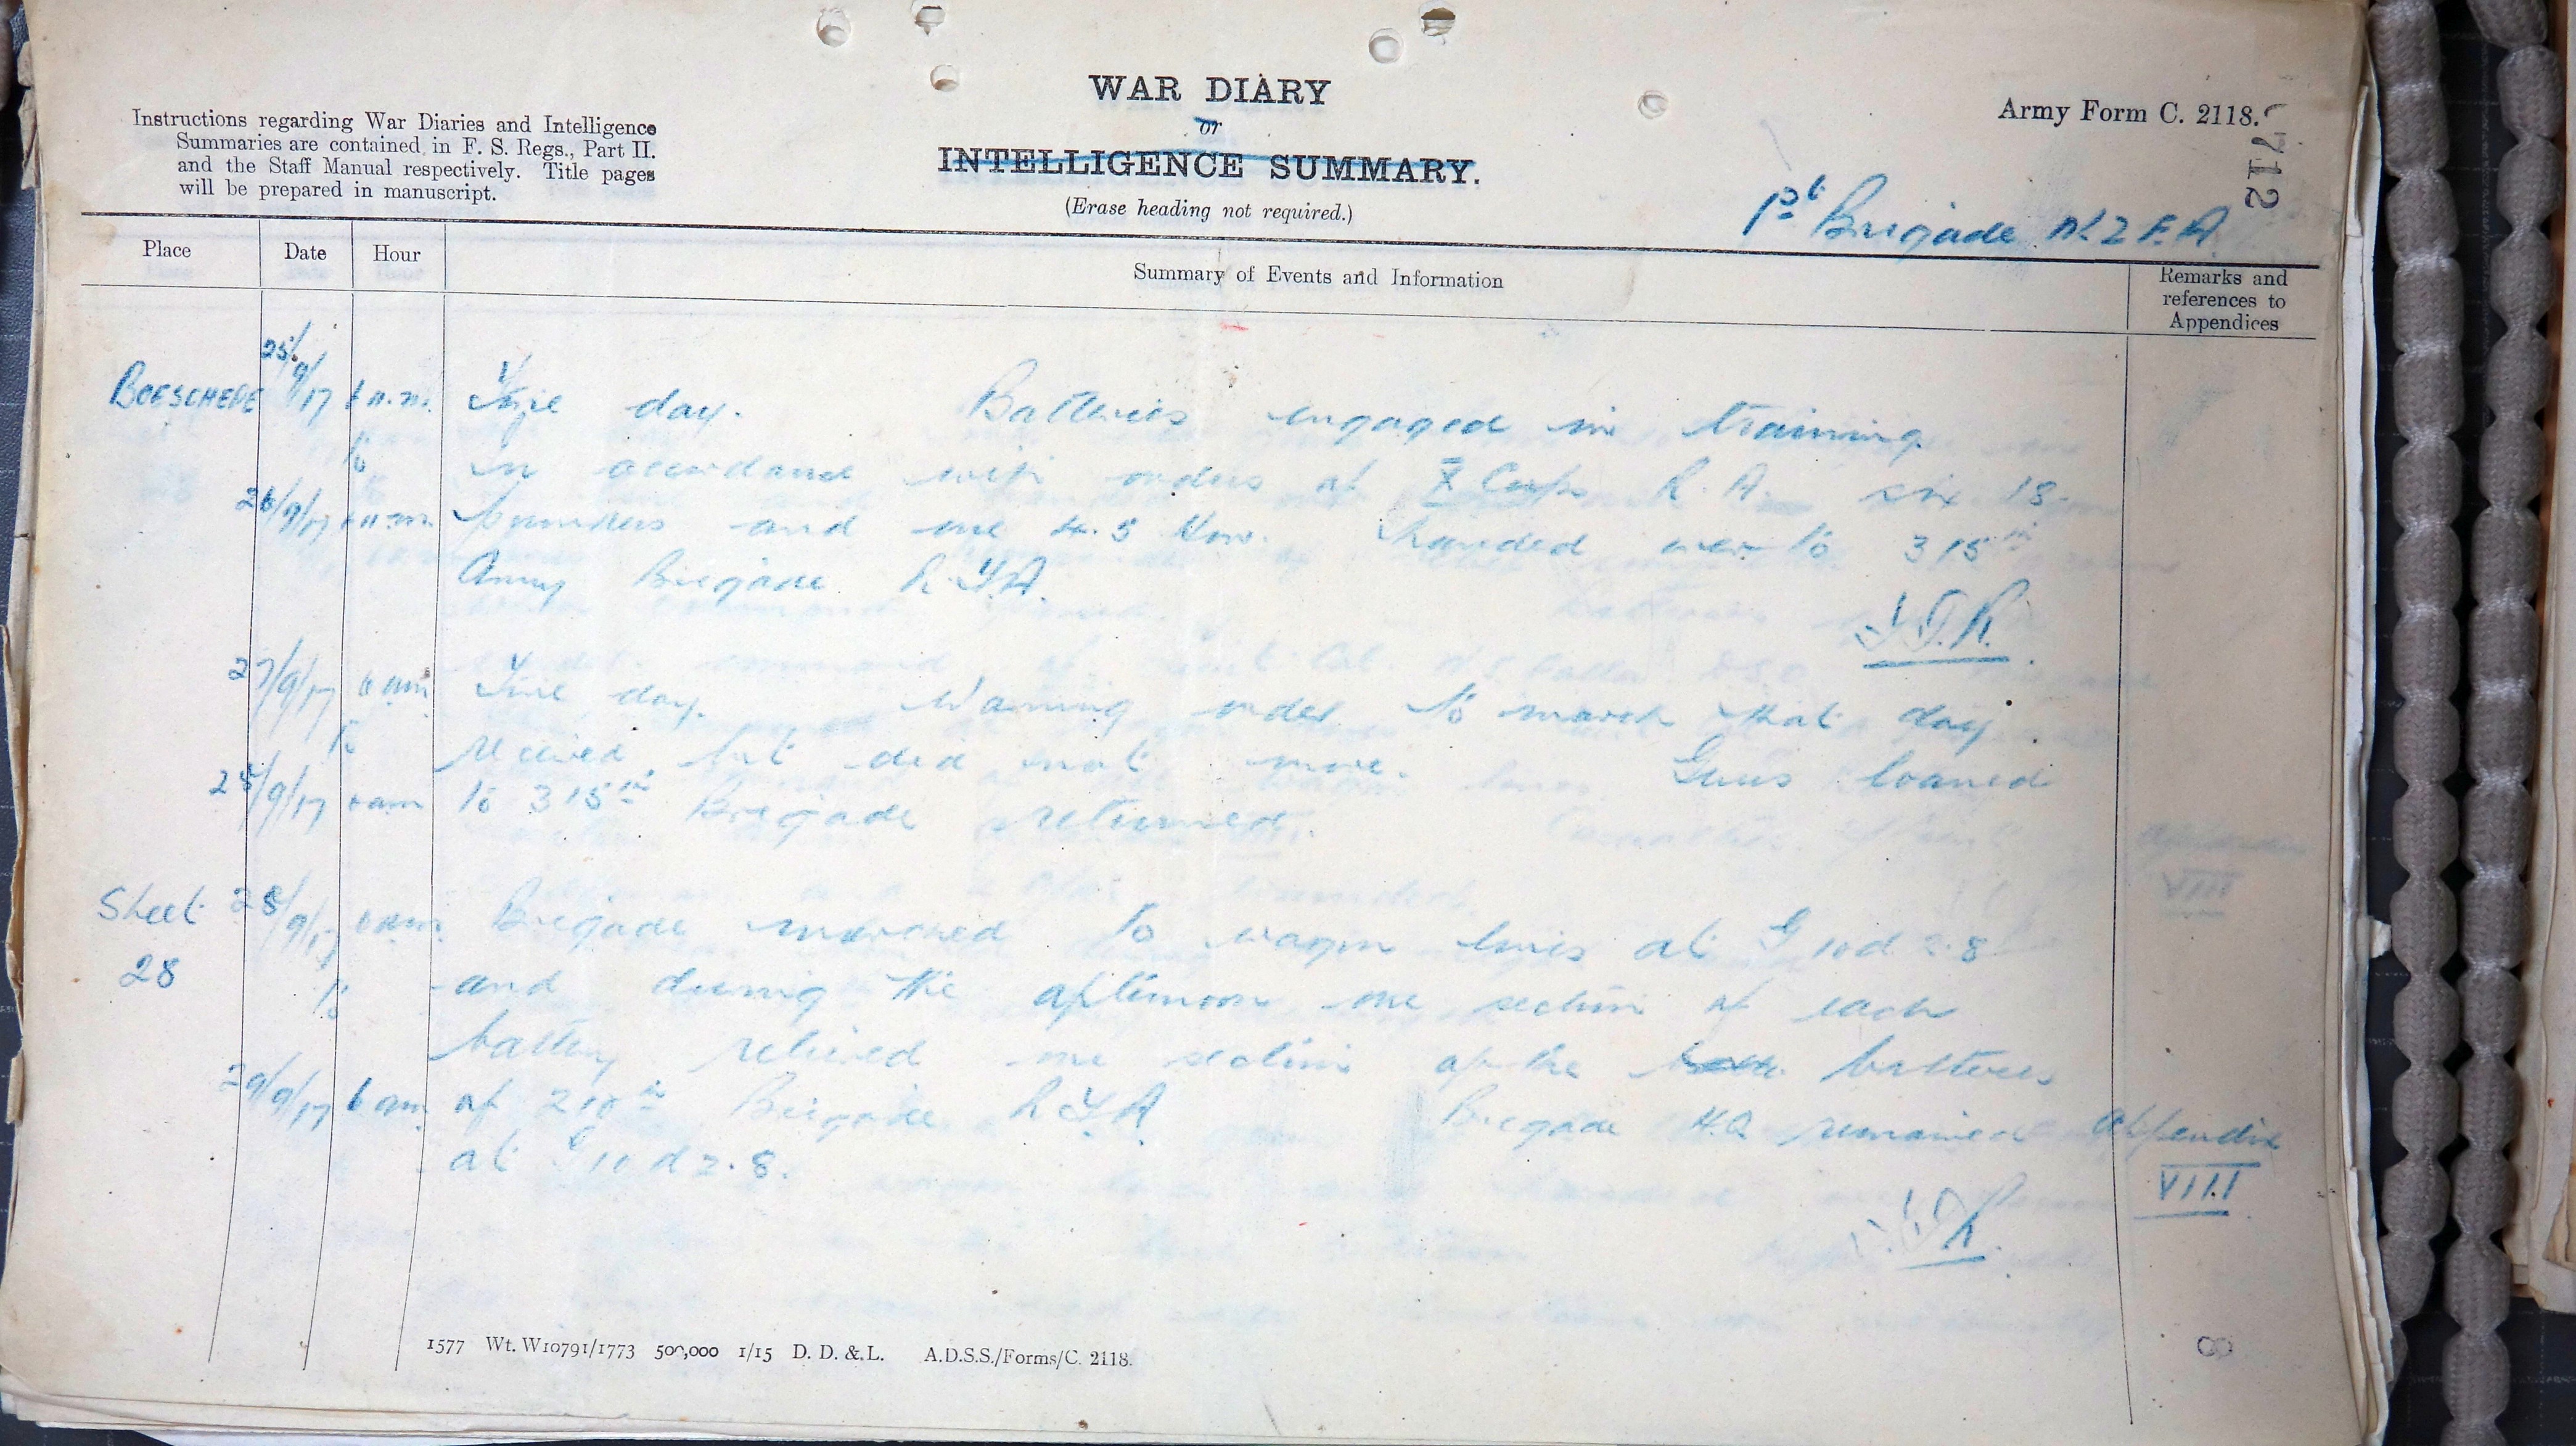 WAR DIARY
or
INTELLIGENCE SUMMARY.
(Erase heading not required.)
Instructions regarding War Diaries and Intelligence
Summaries are contained in F. S. Regs., Part II.
and the Staff Manual respectively. Title pages
will be prepared in manuscript.
Army Form C. 2118.
712
1st Brigade N.Z.F.A
Place Date Hour Summary of Events and Information Remarks and
references to
Appendices
BOESCHEPE 25/9/17 6 a.m. Fine day. Batteries engaged in training
to in accordance with orders of X Corps R.A. six 18-
26/9/17 6 a.m. pounders and one 4.5 How. handed over to 315th
Army Brigade R.F.A.
27/9/17 6 am Fine day. Warning order to march that day
to received but did not move. Guns loaned
28/9/17 6 am to 315th Brigade returned.
Sheet 28/9/17 6 am. Brigade marched to wagon lines at G 10 d 2.8
28 to and during the afternoon one section of each
battery relieved one section of the batteries
29/9/17 6 am. of Brigade R.F.A Brigade H.Q remained Appendix
at G 10 d 2.8. VIII
1577 Wt. W10791/1773 500,000 1/15 D. D. & L. A.D.S.S./Forms/C. 2118.
8